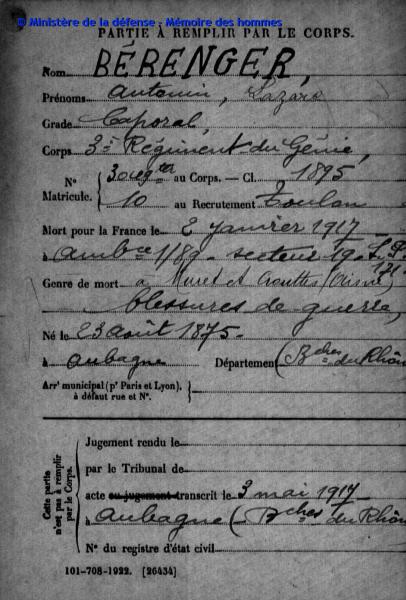 © Ministère de la défense - Mémoire des hommes
PARTIE À REMPLIR PAR LE CORPS.
Nom BÉRENGER,
Prénoms Antonin, Lazare
Grade Caporal,
Corps 3e Régiment du Génie,
N° Matricule. au Corps. — Cl. 1895
10 au Recrutement Toulon
Mort pour la France le 2 janvier 1917
à ambce 1/89 - secteur 19 -
Genre de mort à Muret et Crouttes (Aisne)
blessures de guerre,
Né le 23 août 1875-
à Aubagne Département (Bches du Rhôn
Arrt municipal (pr Paris et Lyon),
à défaut rue et N°.
Cette partie n'est pas à remplir par le Corps.
Jugement rendu le
par le Tribunal de
acte ou jugement transcrit le 3 mai 1917
à Aubagne (Bches du Rhôn
N° du registre d'état civil
101-708-1922. [26434]